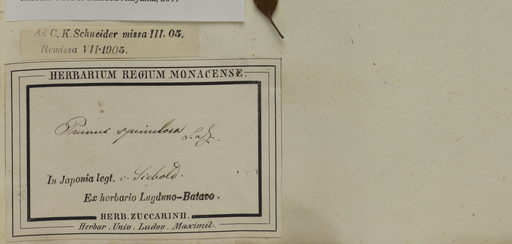 Ad C. K. Schneider missa III. 05.
Remissa VII-1905.
HERBARIUM REGIUM MONACENSE.
Prunus spinulosa S. a Z.
In Japonia legt. v. Siebold.
Ex herbario Lugduno-Batavo.
HERB. ZUCCARINII.
Herbar. Univ. Ludov. Maximil.